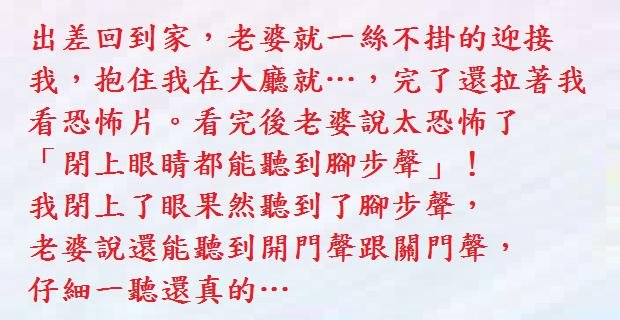 出差回到家，老婆就一絲不掛的迎接
我，抱住我在大廳就…，完了還拉著我
看恐怖片。看完後老婆說太恐怖了
「閉上眼睛都能聽到腳步聲」！
我閉上了眼果然聽到了腳步聲，
老婆說還能聽到開門聲跟關門聲，
仔細一聽還真的…